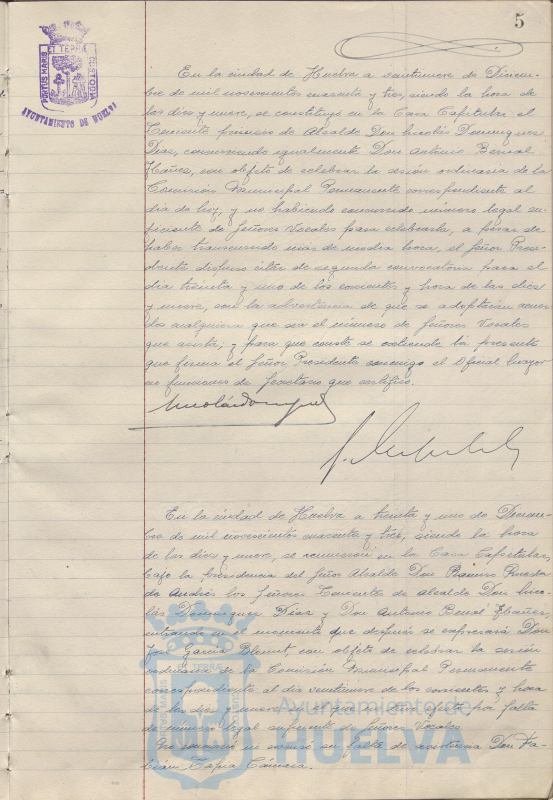 5
PORTUS MARIS ET TERRAE CUSTODIA
AYUNTAMIENTO DE HUELVA
En la ciudad de Huelva a veintinueve de Diciem-
bre de mil novecientos cuarenta y tres, siendo la hora de
las diez y nueve, se constituyó en la Casa Capitular el
Teniente primero de Alcalde Don Nicolás Dominguez
Diaz, concurriendo igualmente Don Antonio Bernal
con objeto de celebrar la sesión ordinaria de la
Comisión Municipal Permanente correspondiente al
dia de hoy, y no habiendo concurrido número legal su-
ficiente de Señores Vocales para celebrarla, a pesar de
haber transcurrido mas de media hora, el Señor Presi-
dente dispuso citar de segunda convocatoria para el
dia treinta y uno de los corrientes y hora de las diez
y nueve, con la advertencia de que se adoptarán acuer-
dos cualquiera que sea el número de Señores Vocales
que asista; y para que conste se extiende la presente
que firma el Señor Presidente conmigo el Oficial Mayor
en funciones de Secretario que certifico.
En la ciudad de Huelva a treinta y uno de Diciem-
bre de mil novecientos cuarenta y tres, siendo la hora
de las diez y nueve, se reunieron en la Casa Capitular,
bajo la Presidencia del Señor Alcalde Don Ramiro Rueda
de Andrés los Señores Tenientes de Alcalde Don Nico-
lás Dominguez Diaz y Don Antonio
entrando en el momento que después se expresará Don
José Garcia con objeto de celebrar la sesión
ordinaria de la Comisión Municipal Permanente
correspondiente al dia veintinueve de los corrientes y hora
de las diez y nueve, y que no tuvo efecto por falta
de número legal suficiente de Señores Vocales.
su falta de asistencia Don Fa-
bián Tapia Cámara.
Ayuntamiento de
HUELVA